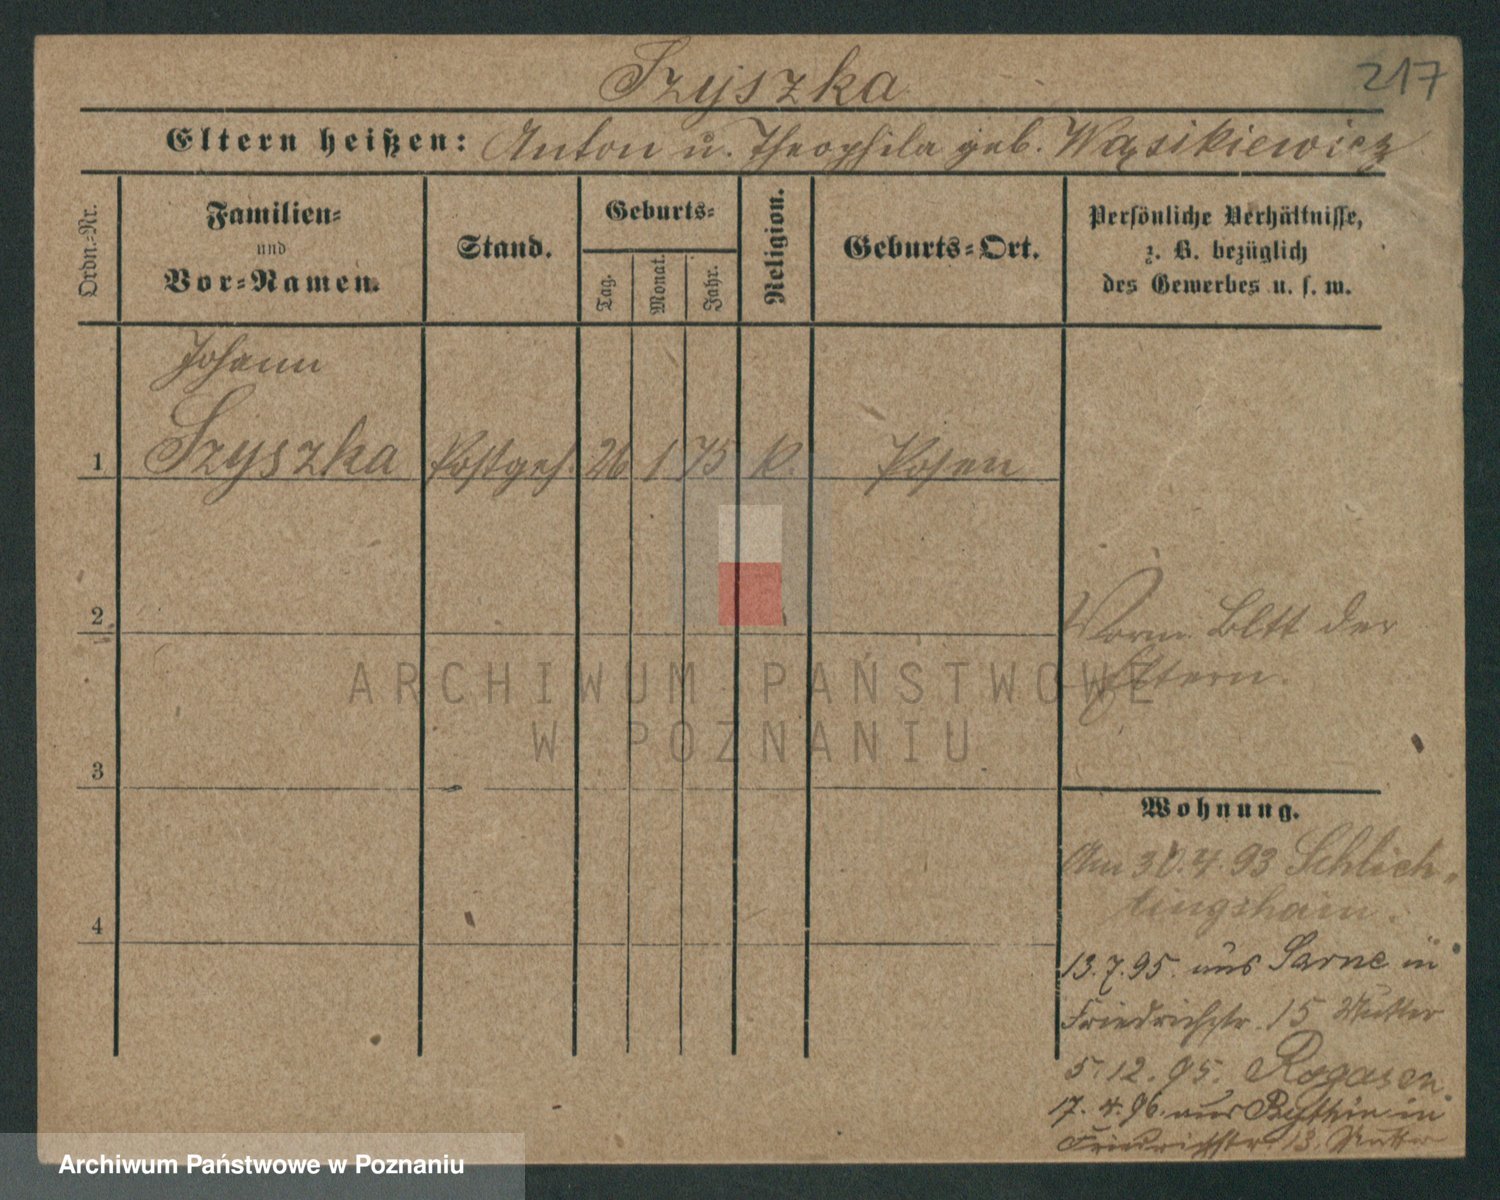 Szyszka
217
Eltern heißen: Anton u. Theophila geb. Wąsikiewicz
Ordn.-Nr.
Familien-
und
Vor-Namen.
Stand.
Geburts-
Tag.
Monat.
Jahr.
Religion.
Geburts-Ort.
Persönliche Verhältnisse,
z. B. bezüglich
des Gewerbes u. s. w.
Johann
1 Szyszka Postgeh. 26 1 75 k. Posen
2
Vorm. Bltt der
Eltern.
ARCHIWUM PAŃSTWOWE
W POZNANIU
3
Wohnung.
Am 30.4.93 Schlich-
tingsheim.
4
13.7.95. aus Sarne in
Friedrichstr. 15 Mutter
5.12.95. Rogasen.
17.4.96. aus Bythin in
Friedrichstr. 13. Mutter
Archiwum Państwowe w Poznaniu